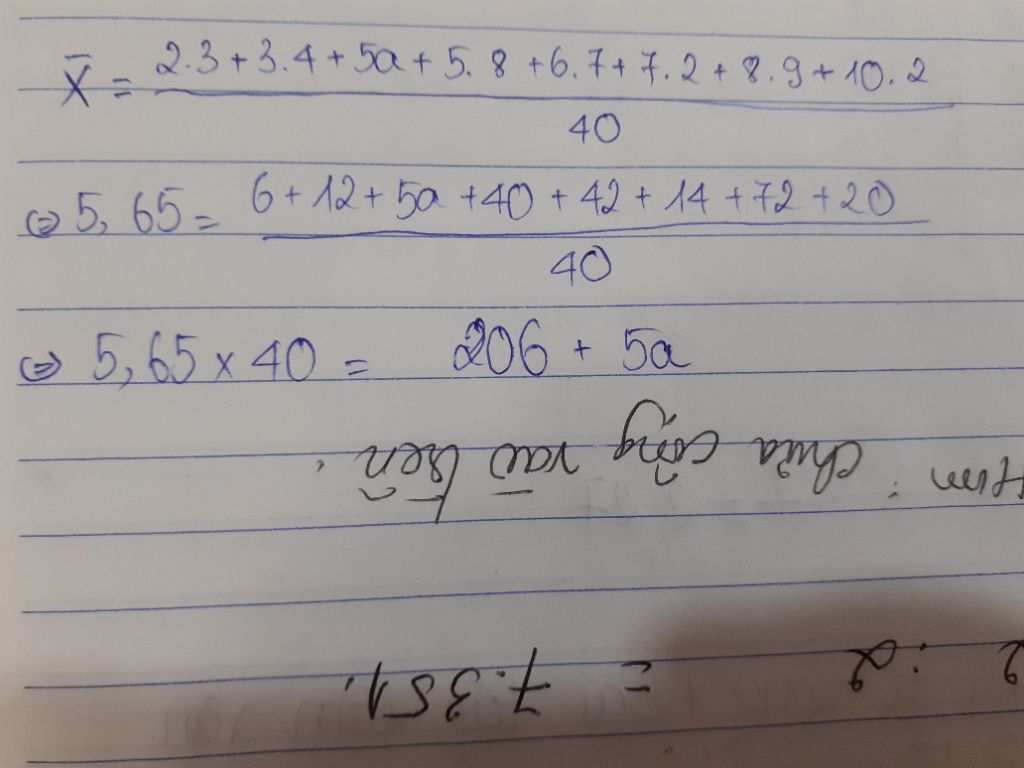 X̄ = (2.3 + 3.4 + 5a + 5.8 + 6.7 + 7.2 + 8.9 + 10.2) / 40
⇔ 5,65 = (6 + 12 + 5a + 40 + 42 + 14 + 72 + 20) / 40
⇔ 5,65 x 40 = 206 + 5a
chưa cộng vào trên.
2 : 2 = 7.351.